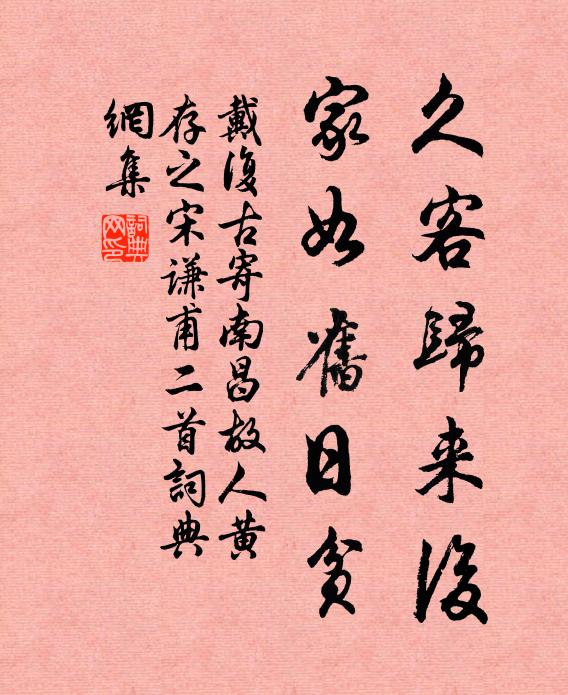 久客歸来後
家如舊日貧
戴復古寄南昌故人黄
存之宋謙甫二首詞典
網集
詞典
网印